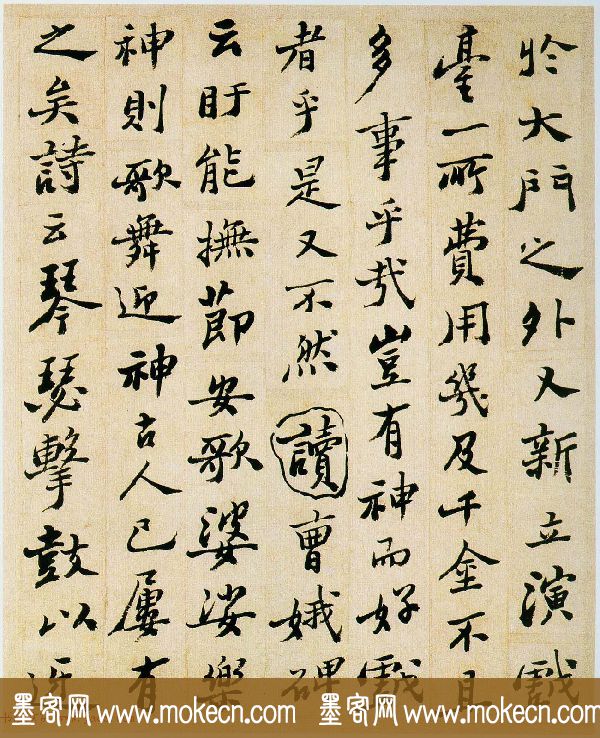 於大門之外又新立演戲
臺一所費用幾及千金不且
多事乎哉豈有神而好戲
者乎是又不然讀曹娥碑
云盱能撫節安歌婆娑樂
神則歌舞迎神古人已屢有
之矣詩云琴瑟擊鼓以迓
墨客网 www.mokecn.com 墨客网 www.mokecn.com